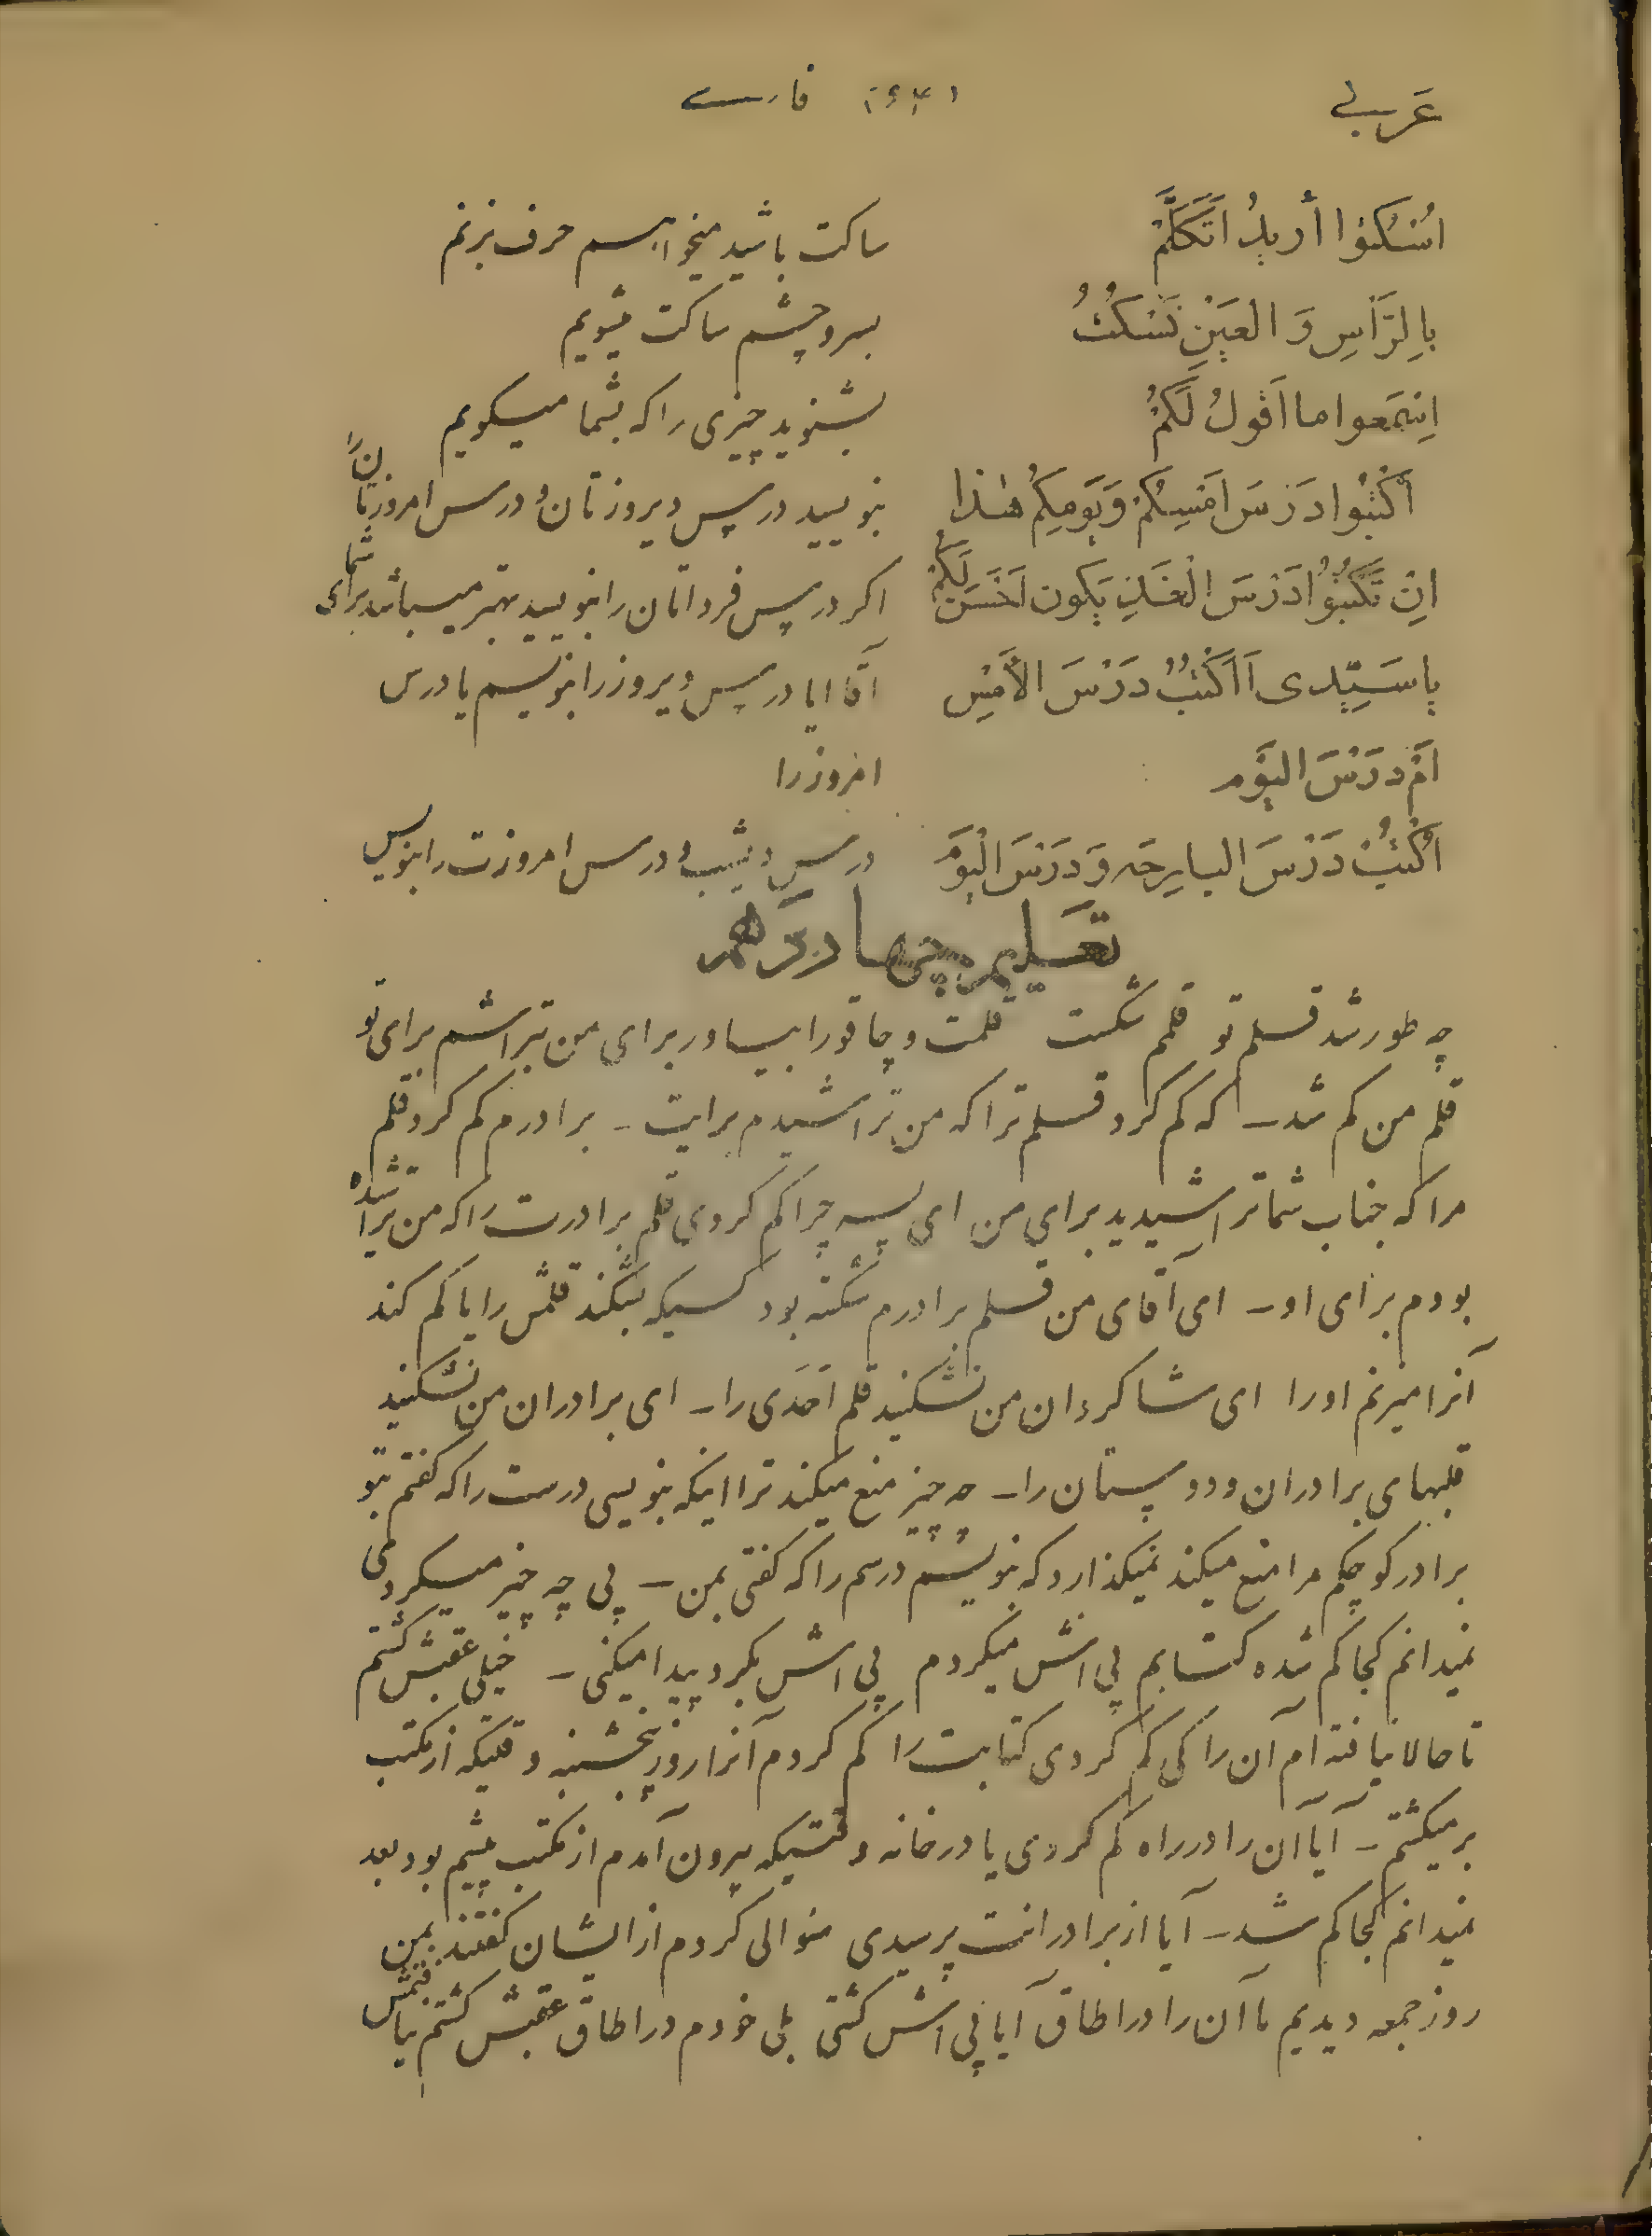 عَربی فارسے
اُسْکُتُوا أُریدُ اَتَکَلَّمْ ساکت باشید میخواهم حرف بزنم
بِالرَّأسِ وَ العَیْنِ نَسْکُتُ بسر و چشم ساکت میشویم
اِسْتَمِعوا ما اَقولُ لَکُمْ بشنوید چیزی را که بشما میگویم
اُکْتُبُوا دَرْسَ اَمْسِکُمْ وَ یَوْمِکُمْ هٰذا بنویسید درس دیروزتان و درس امروزتان را
اِنْ تَکْتُبُوُا دَرْسَ الْغَدِ یَکون اَحْسَن لَکُمْ اگر درس فرداتان را بنویسید بهتر میباشد برای شما
یا سَیِّدی اَ اَکْتُبُ دَرْسَ الأَمْسِ آقا ایا درس دیروز را بنویسم یا درس
اَمْ دَرْسَ الیَوْم امروز را
اُکْتُبْ دَرْسَ البارِحَه وَ دَرْسَ الْیَوْمَ درس دیشب و درس امروزت را بنویس
تعلیم چهاردهم
چه طور شد قلم تو قلمم شکست قلمت و چاقو را بیاور برای من بتراشم برای تو
قلم من کم شد ـ که کم کرد قلم ترا که من تراشیدم برایت ـ برادرم کم کرد قلم
مرا که جناب شما تراشیدید برای من ای پسر چرا کم کردی قلم برادرت را که من تراشیده
بودم برای او ـ ای آقای من قلم برادرم شکسته بود کسیکه بشکند قلمش را یا کم کند
آنرا میزنم او را ای شاکردان من نشکنید قلم اَحَدی را ـ ای برادران من نشکنید
قلمهای برادران و دوستان را ـ چه چیز منع میکند ترا اینکه بنویسی درست را که کفتم بتو
برادر کوچکم مرا منع میکند نمیکذارد که بنویسم درسم را که کفتی بمن ـ پی چه چیز میکردی
نمیدانم کجا کم شده کتابم پی اش میکردم پی اش بکرد پیدا میکنی ـ خیلی عقبش کشتم
تا حالا نیافته ام آن را کی کم کردی کتابت را کم کردم آنرا روز پنجشنبه وقتیکه از مکتب
بر میکشتم ـ آیا آن را در راه کم کردی یا در خانه وقتیکه بیرون آمدم از مکتب پیشم بود بعد
نمیدانم کجا کم شد ـ آیا از برادرانت پرسیدی سؤالی کردم از ایشان کفتند بمن
روز جمعه دیدیم ما آن را در اطاق آیا پی اش کشتی بلی خودم در اطاق عقبش کشتم نیافتمش